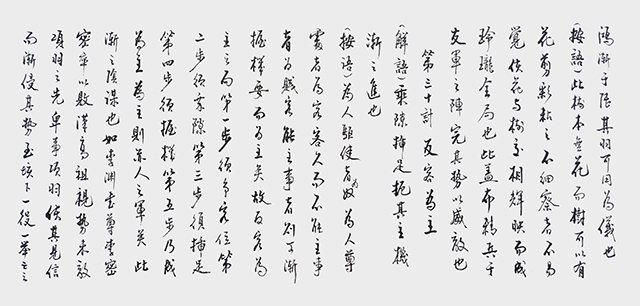 鴻漸于陸其羽可用為儀也
(按語)此樹本無花而樹可以有
花剪彩粘之不細察者不易
覺使花与樹交相輝映而成
玲瓏全局也此蓋布精兵于
友軍之陣完其势以威敵也
第三十計 反客為主
(解語)乘隙插足扼其主機
漸之進也
(按語)為人驅使者為奴為人尊
處者為客客久而不能主事
者為賤客能主事者則可漸
握機要而為主矣故反客為
主之局第一步須争客位第
二步須乘隙第三步須插足
第四步須握機第五步乃成
為主為主則并人之軍矣此
漸之陰謀也如李渊書尊李密
密卒以敗漢高祖視势未敵
項羽之先卑事項羽使其見信
而漸侵其势至垓下一役一舉亡之